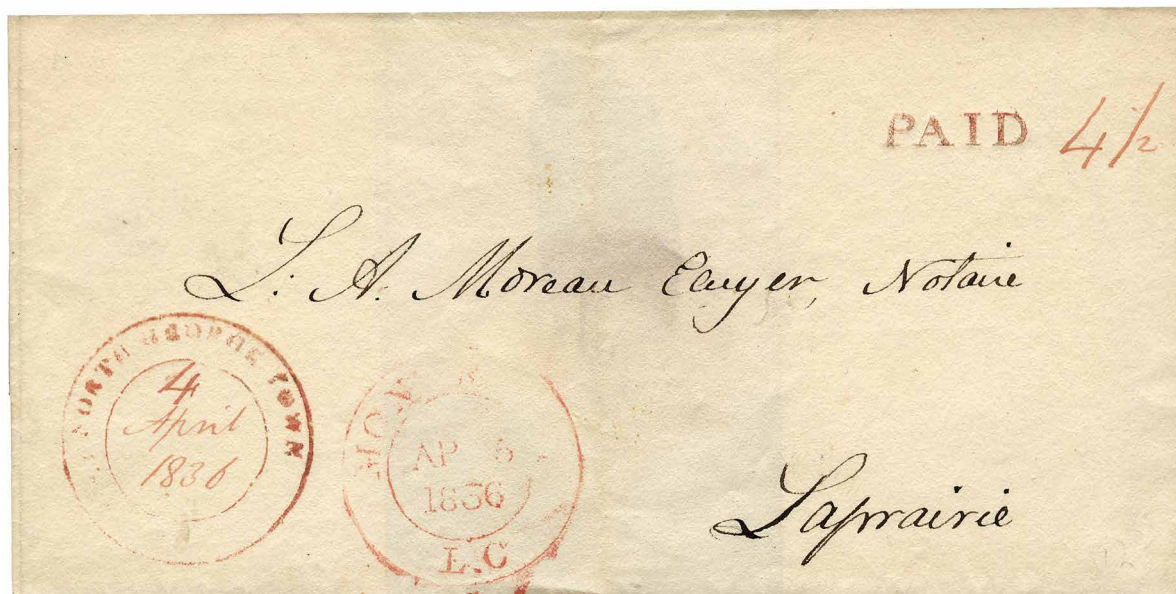 PAID 4 1/2
L. A. Moreau Ecuyer, Notaire
NORTH GEORGE TOWN
4
April
1836
MON
AP 6
1836
L.C
Laprairie